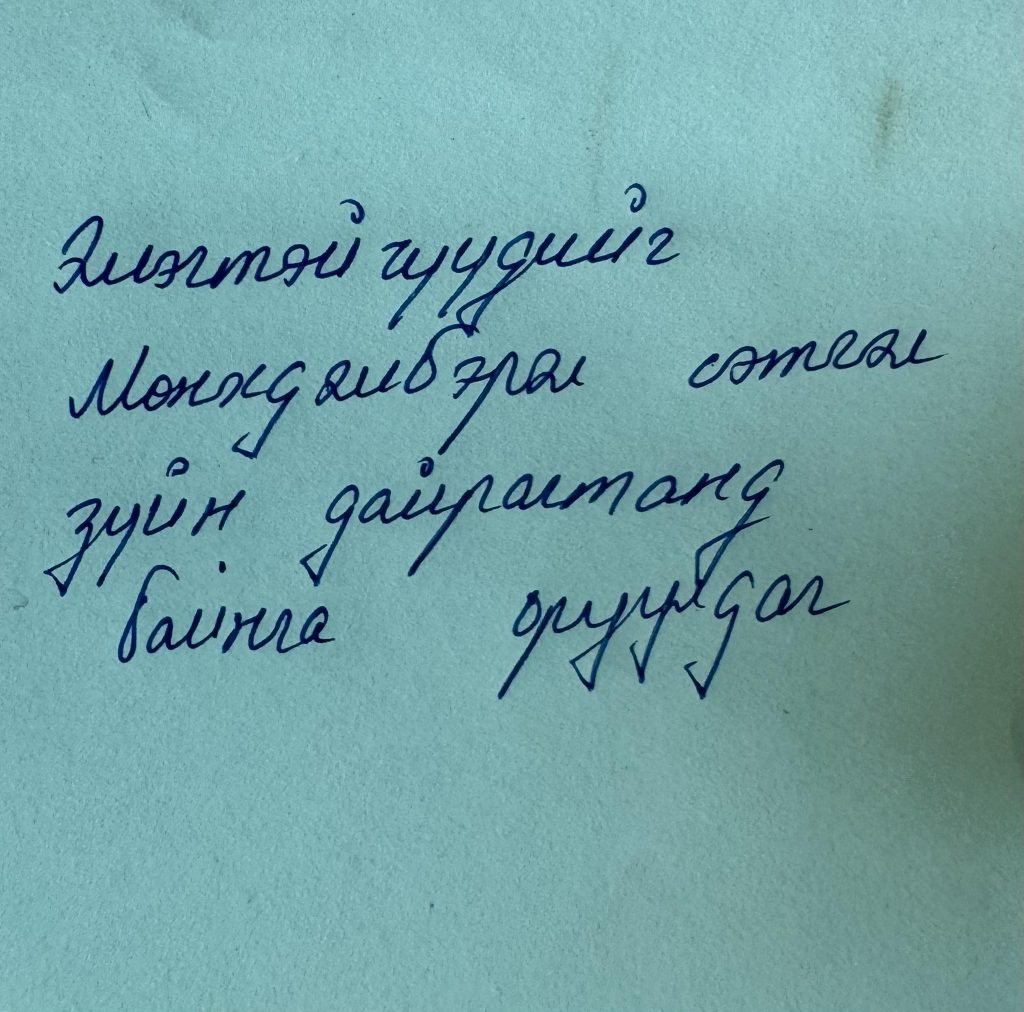 Эмэгтэйчүүдийг
Мөнхдэлбэрэл сэтгэл
зүйн дайралтанд
байнга оруулдаг